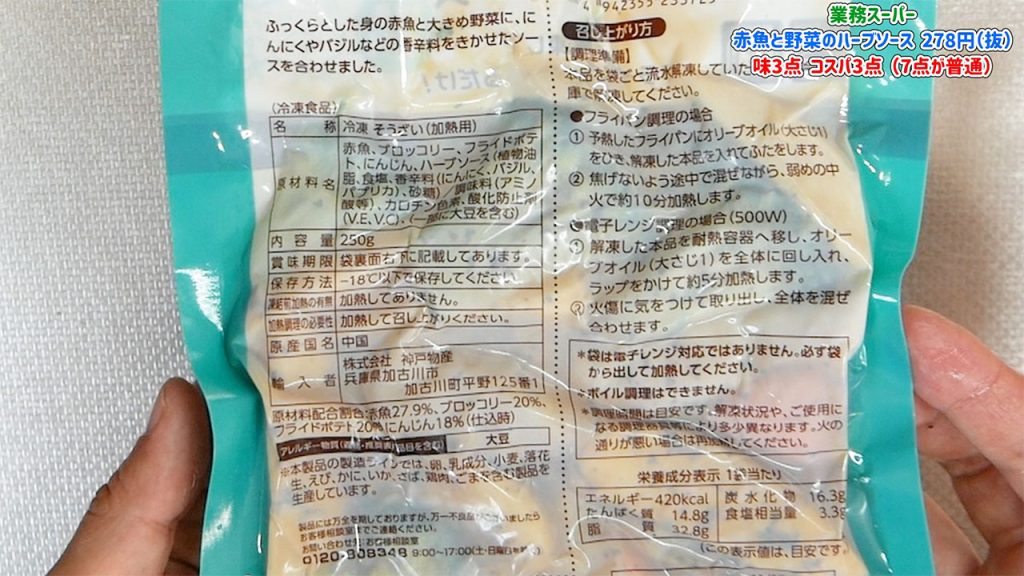 業務スーパー
赤魚と野菜のハーブソース 278円(抜)
味3点 コスパ3点 (7点が普通)
ふっくらとした身の赤魚と大きめ野菜に、に
んにくやバジルなどの香辛料をきかせたソー
スを合わせました。
だけ!
(冷凍食品)
名 称 冷凍 そうざい(加熱用)
原材料名 赤魚、ブロッコリー、フライドポテ
ト、にんじん、ハーブソース(植物油
脂、食塩、香辛料(にんにく、バジル、
パプリカ)、砂糖)/調味料(アミノ
酸等)、カロチン色素、酸化防止剤
(V.E、V.C)、(一部に大豆を含む)
内容量 250g
賞味期限 袋裏面右下に記載してあります。
保存方法 −18℃以下で保存してください。
凍結前加熱の有無 加熱してありません。
加熱調理の必要性 加熱して召し上がりください。
原産国名 中国
輸入者 株式会社 神戸物産
兵庫県加古川市
加古川町平野125番1
原材料配合割合:赤魚27.9%、ブロッコリー20%、
フライドポテト20%、にんじん18%(仕込時)
アレルギー物質 大豆
※本製品の製造ラインでは、卵、乳成分、小麦、落花
生、えび、かに、いか、さば、鶏肉、ごまを含む製品を
生産しています。
製品には万全を期しておりますが、万一不良品がございましたら
お客様相談室までご連絡ください。
お問い合わせ:お客様相談室
0120-808348 9:00〜17:00(土・日曜日を除く)
召し上がり方
【調理準備】
本品を袋ごと流水解凍していた
庫で解凍してください。
●フライパン調理の場合
① 予熱したフライパンにオリーブオイル(大さじ1)
をひき、解凍した本品を入れてふたをします。
② 焦げないよう途中で混ぜながら、弱めの中
火で約10分加熱します。
●電子レンジ調理の場合(500W)
① 解凍した本品を耐熱容器へ移し、オリー
ブオイル(大さじ1)を全体に回し入れ、
ラップをかけて約5分加熱します。
② 火傷に気をつけて取り出し、全体を混ぜ
合わせます。
*袋は電子レンジ対応ではありません。必ず袋
から出して加熱してください。
*ボイル調理はできません。
*調理時間は目安です。解凍状況や、ご使用に
なる調理器具等により多少異なります。火の
通りが悪い場合は再加熱してください。
栄養成分表示 1袋当たり
エネルギー 420kcal 炭水化物 16.3g
たんぱく質 14.8g 食塩相当量 3.3g
脂質 32.8g
(この表示値は、目安です。)